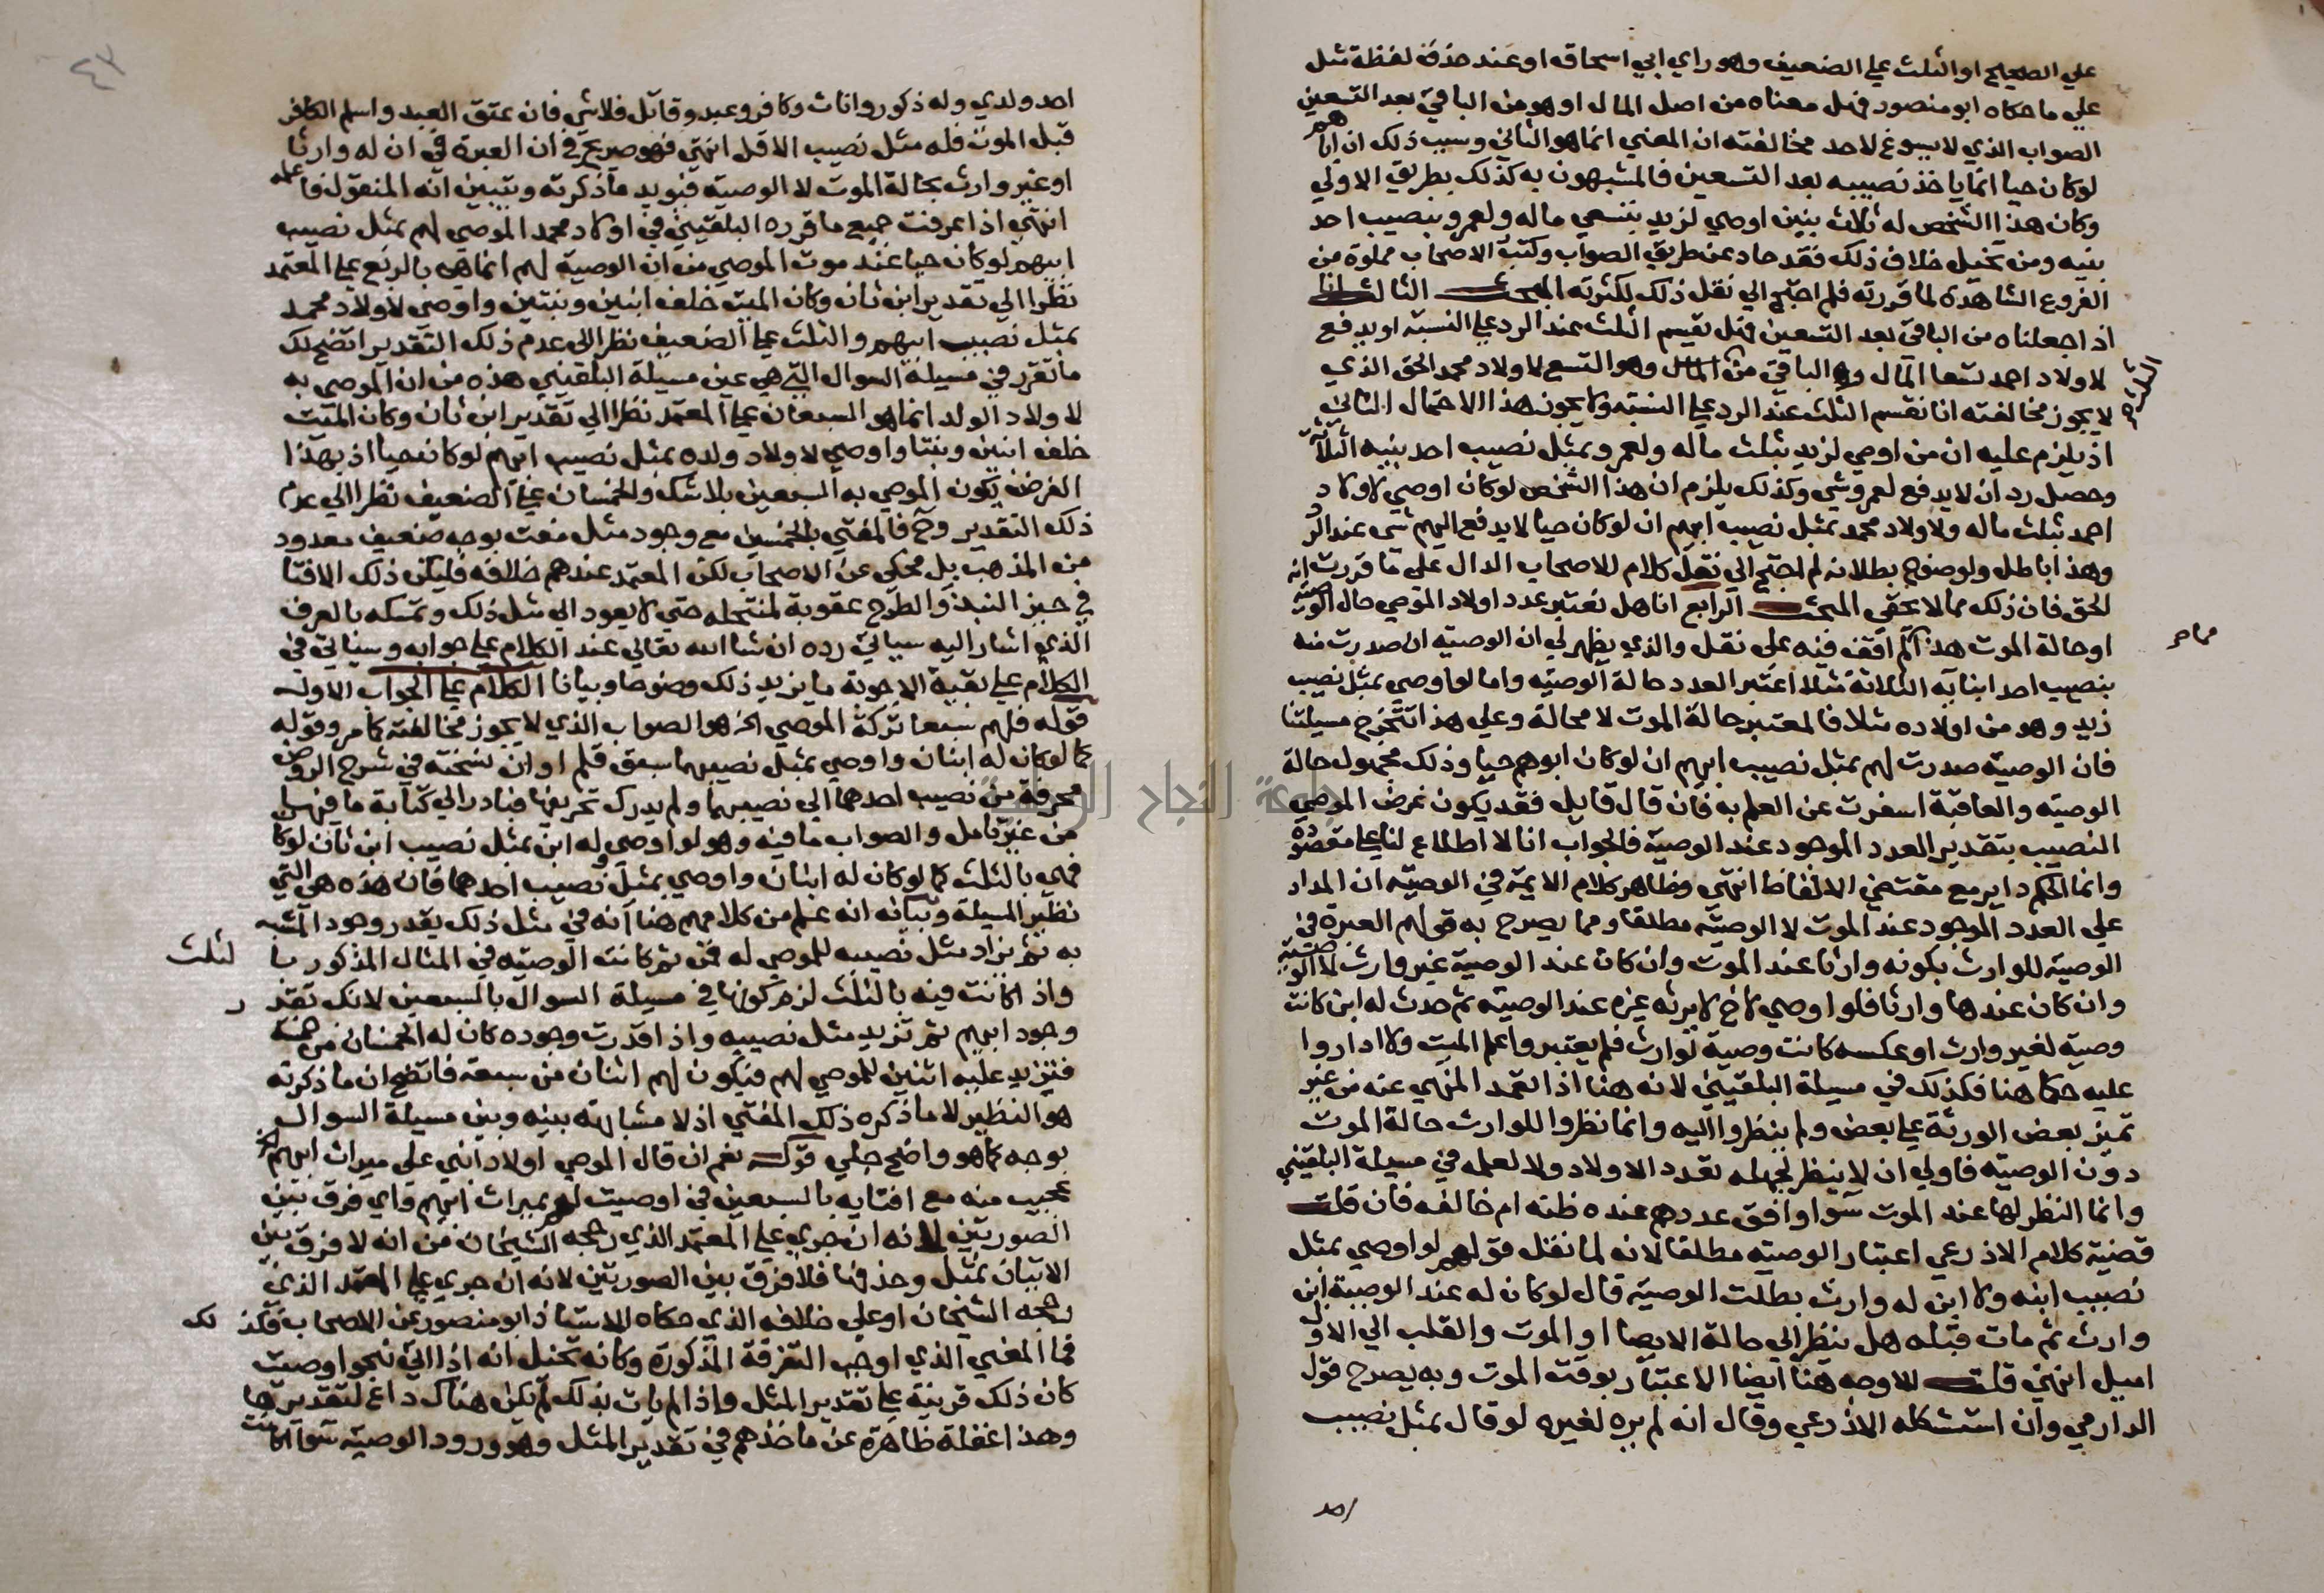 علي الصحيح او الثلث علي الضعيف وهو راي ابي اسحاق او عند حذف لفظة مثل
علي ما حكاه ابو منصور فهل معناه من اصل المال او هو من الباقي بعد التسعين
الصواب الذي لا يسوغ لاحد مخالفته ان المعني انما هو الثاني وسبب ذلك ان اباهم
لو كان حيا انما ياخذ نصيبه بعد التسعين فالمشبهون به كذلك بطريق الاولي
وكان هذا الشخص له ثلاث بنين اوصي لزيد بتسعي ماله ولعمرو بنصيب احد
بنيه ومن تخيل خلاف ذلك فقد حاد عن طريق الصواب وكتب الاصحاب مملوة من
الفروع الشاهدة لما قررته فلم احتج الي نقل ذلك لكثرته المبحث الثالث انا
اذ اجعلناه من الباقي بعد التسعين فهل يقسم الثلث عند الرد علي النسبة او يدفع
لاولاد احمد تسعا المال والباقي من الثلث وهو التسع لاولاد محمد الحق الذي
لا يجوز مخالفته انا نقسم الثلث عند الرد علي النسبة ولا يجوز هذا الاحتمال الثاني
اذ يلزم عليه ان من اوصي لزيد بثلث ماله ولعمرو بمثل نصيب احد بنيه الثلاثة
وحصل رد ان لا يدفع لعمرو شي وكذلك يلزم ان هذا الشخص لو كان اوصي لاولاد
احمد بثلث ماله ولاولاد محمد بمثل نصيب ابيهم ان لو كان حيا لا يدفع اليهم شي عند الرد
وهذا باطل ولوضوح بطلانه لم احتج الي نقل كلام للاصحاب الدال علي ما قررت انه
الحق فان ذلك مما لا يخفي المبحث الرابع انا هل نعتبر عدد اولاد الموصي حال الوصية
او حالة الموت هذا لم اقف فيه علي نقل والذي يظهر لي ان الوصية ان صدرت منه
بنصيب احد ابنايه الثلاثة مثلا اعتبر العدد حالة الوصية واما لو اوصي بمثل نصيب
زيد وهو من اولاده مثلا فالمعتبر حالة الموت لا محالة وعلي هذا تتخرج مسيلتنا
فان الوصية صدرت لهم بمثل نصيب ابيهم ان لو كان ابوهم حيا وذلك مجهول حالة
الوصية والعاقبة اسفرت عن العلم به فان قال قايل فقد يكون غرض الموصي
النصيب بتقدير العدد الموجود عند الوصية فالجواب انا لا اطلاع لنا علي مقصوده
وانما الحكم داير مع مقتضي الالفاظ انتهي وظاهر كلام الايمة في الوصية ان المدار
علي العدد الموجود عند الموت لا الوصية مطلقا ومما يصرح به قولهم العبرة في
الوصية للوارث بكونه وارثا عند الموت وان كان عند الوصية غير وارث لا الوصية
وان كان عندها وارثا فلو اوصي لاخ لا يرثه غيره عند الوصية ثم حدث له ابن كانت
وصية لغير وارث او عكسه كانت وصية لوارث فلم يعتبروا علم الميت ولا اداروا
عليه حكما هنا فكذلك في مسيلة البلقيني لانه هنا اذا تعمد المنهي عنه من غير
تميز بعض الورثة علي بعض ولم ينظروا اليه وانما نظروا للوارث حالة الموت
دون الوصية فاولي ان لا ينظر لجهله تعدد الاولاد ولا لعلمه في مسيلة البلقيني
وانما النظر لها عند الموت سوا وافق عددهم عنده ظنه ام خالفه فان قلت
قضية كلام الاذرعي اعتبار الوصية مطلقا لانه لما نقل قولهم لو اوصي بمثل
نصيب ابنه ولا ابن له وارث بطلت الوصية قال لو كان له عند الوصية ابن
وارث ثم مات قبله هل ينظر الي حالة الايصا او الموت والقلب الي الاول
اميل انتهي قلت للاوجه هنا ايضا الاعتبار بوقت الموت وبه يصرح قول
الدارمي وان استشكله الاذرعي وقال انه لم يره لغيره لو قال بمثل نصيب
احد
احد ولدي وله ذكور واناث وكافر وعبد وقاتل فلاشي فان عتق العبد واسلم الكافر
قبل الموت فله مثل نصيب الاقل انتهي فهو صريح في ان العبرة في ان له وارثا
او غير وارث بحالة الموت لا الوصية فيويد ما ذكرته ويتبين انه المنقول فاعلمه
انتهي اذا عرفت جميع ما قرره البلقيني في اولاد محمد الموصي لهم بمثل نصيب
ابيهم لو كان حيا عند موت الموصي من ان الوصية لهم انما هي بالربع علي المعتمد
نظرا الي تقدير ابن ثان وكان الميت خلف ابنين وبنتين واوصي لاولاد محمد
بمثل نصيب ابيهم والثلث علي الضعيف نظرا الي عدم ذلك التقدير اتضح لك
ما تقرر في مسيلة السوال التي هي عين مسيلة البلقيني هذه من ان الموصي به
لاولاد الولد انما هو السبعان علي المعتمد نظرا الي تقدير ابن ثان وكان الميت
خلف ابنين وبنتا واوصي لاولاد ولده بمثل نصيب ابيهم لو كان حيا اذ بهذا
الفرض يكون الموصي به السبعين بلا شك والخمسان علي الضعيف نظرا الي عدم
ذلك التقدير وح فالمفتي بالخمسين مع وجود مثل مفت بوجه ضعيف معدود
من المذهب بل محكي عن الاصحاب لكن المعتمد عندهم خلافه فليكن ذلك الافتا
في حيز النبذ والطرح عقوبة لمنتحله حتي لا يعود الي مثل ذلك وتمسكه بالعرف
الذي اشار اليه سياتي رده ان شا الله تعالي عند الكلام علي جوابه وسياتي في
الكلام علي بقية الاجوبة ما يزيد ذلك وضوحا وبيانا الكلام علي الجواب الاول
قوله فلهم سبعا تركة الموصي الخ هو الصواب الذي لا يجوز مخالفته كما مر وقوله
كما لو كان له ابنان واوصي بمثل نصيبهما سبق قلم او ان نسخته في شرح الروض
محرفة من نصيب احدهما الي نصيبهما ولم يدرك تحريفها فبادر الي كتابة ما فيها
من غير تامل والصواب ما فيه وهو لو اوصي وله ابن بمثل نصيب ابن ثان لو كان
فهي بالثلث كما لو كان له ابنان واوصي بمثل نصيب احدهما فان هذه هي التي
نظير المسيلة وبيانه انه علم من كلامهم هنا انه في مثل ذلك يقدر وجود المشبه
به ثم يزاد مثل نصيبه للموصي له فمن ثم كانت الوصية في المثال المذكور بالثلث
واذا كانت فيه بالثلث لزم كونها في مسيلة السوال بالسبعين لانك تقدر
وجود ابيهم ثم تزيد مثل نصيبه واذا قدرت وجوده كان له الخمسان من خمسة
فتزيد عليه اثنين للموصي لهم فيكون لهم اثنان من سبعة فاتضح ان ما ذكرته
هو النظير لا ما ذكره ذلك المفتي اذ لا مشابهة بينه وبين مسيلة السوال
بوجه كما هو واضح جلي قوله نعم ان قال الموصي اولاد ابني علي ميراث ابيهم الخ
عجيب منه مع افتايه بالسبعين في اوصيت لهم بميراث ابيهم واي فرق بين
الصورتين لانه ان جري علي المعتمد الذي رجحه الشيخان من انه لا فرق بين
الاتيان بمثل وحذفها فلا فرق بين الصورتين لانه ان جري علي المعتمد الذي
رجحه الشيخان او علي خلافه الذي حكاه الاستاذ ابو منصور عن الاصحاب فكذلك
فما المعني الذي اوجب التفرقة المذكورة وكانه تخيل انه اذا اتي بنحو اوصيت
كان ذلك قرينة علي تقدير المثل واذا لم يات بذلك لم تكن هناك داع لتقديرها
وهذا غفلة ظاهرة عن ماخذهم في تقدير المثل وهو ورود الوصية سوا اكانت